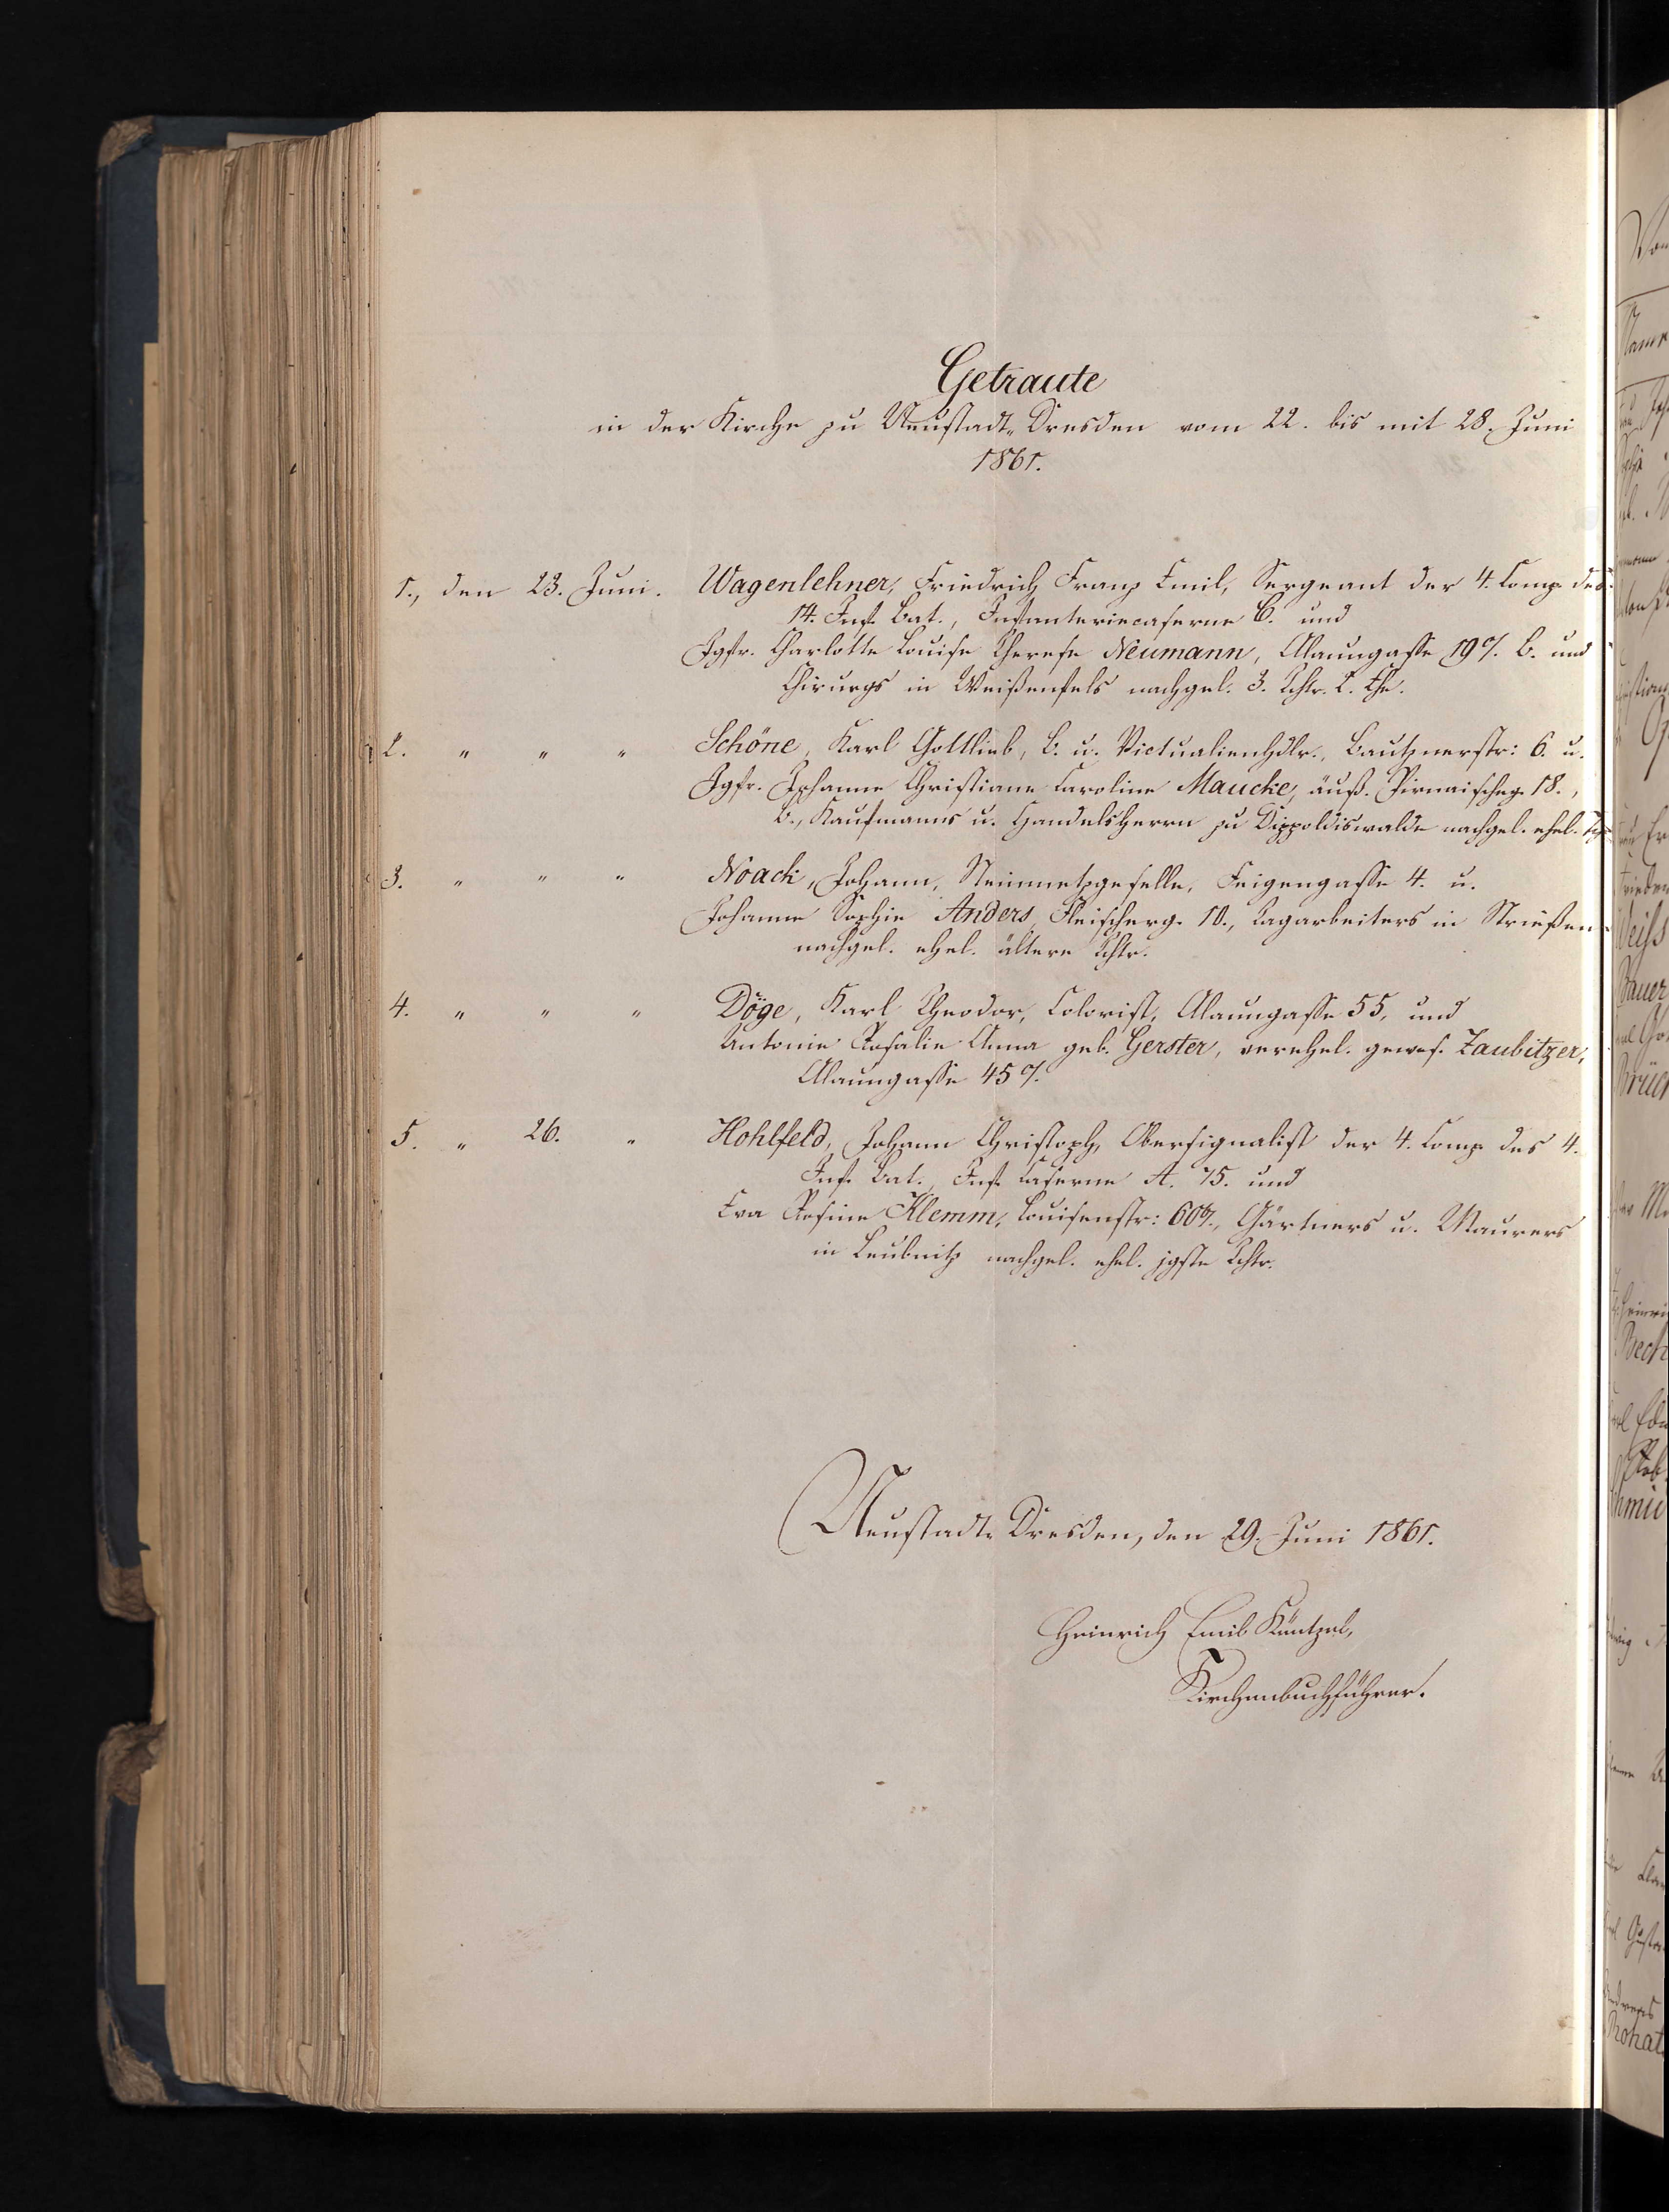 Getraute
in der Kirche zu Neustadt-Dresden vom 22. bis mit 28. Juni
1861.
1., den 23. Juni. Wagenlehner, Friedrich Franz Emil, Sergeant der 4. Comp. des
14. Inf. Bat., Infanteriecaserne C. und
Jgfr. Charlotte Louise Therese Neumann, Alaungasse 19 B. und
Chirurgs in Weißenfels nachgel. 3. Tchtr. 2. Ehe.
2. " " " Schöne, Karl Gottlieb, B. u. Victualienhdlr., Bautznerstr: 6. u.
Jgfr. Johanne Christiane Caroline Maucke, äuß. Pirnaischeg. 18.,
B., Kaufmanns u. Handelsherrn zu Dippoldiswalde nachgel. ehel.
3. " " " Noack, Johann, Steinmetzgeselle, Feigengasse 4. u.
Johanne Sophie Anders, Fleischerg. 10., Tagarbeiters in Strießen
nachgel. ehel. ältere Tchtr.
4. " " " Döge, Karl Theodor, Colorist, Alaungasse 55, und
Antonie Rosalie Anna geb. Gerster, verehel. gewes. Zaubitzer,
Alaungasse 45
5. " 26. " Hohlfeld, Johann Christoph, Obersignalist der 4. Comp. des 4.
Inf. Bat., Inf. Caserne A. 75. und
Eva Rosine Klemm, Louisenstr: 60, Gärtners u. Maurers
in Leubnitz nachgel. ehel. jgste Tchtr.
Neustadt-Dresden, den 29. Juni 1861.
Heinrich Emil Küntzel,
Kirchenbuchführer.